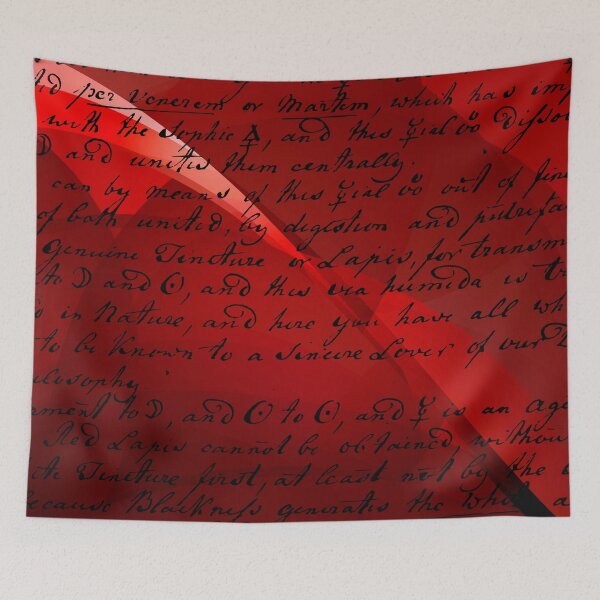 per Venerem or Martem, which has
with the Sophic 🜍, and this ☿ial
☽ and unites them centrally.
can by means of this ☿ial out of
of both united, by digestion and
Genuine Tincture or Lapis, for transm
to ☽ and ☉, and this via humida is
in Nature, and here you have all
to be Known to a Sincere Lover of our
losophy
ament to ☽, and ☉ to ☉, and ☿ is an
Red Lapis cannot be obtained, withou
te Tincture first, at least not by the
because Blackness generates the